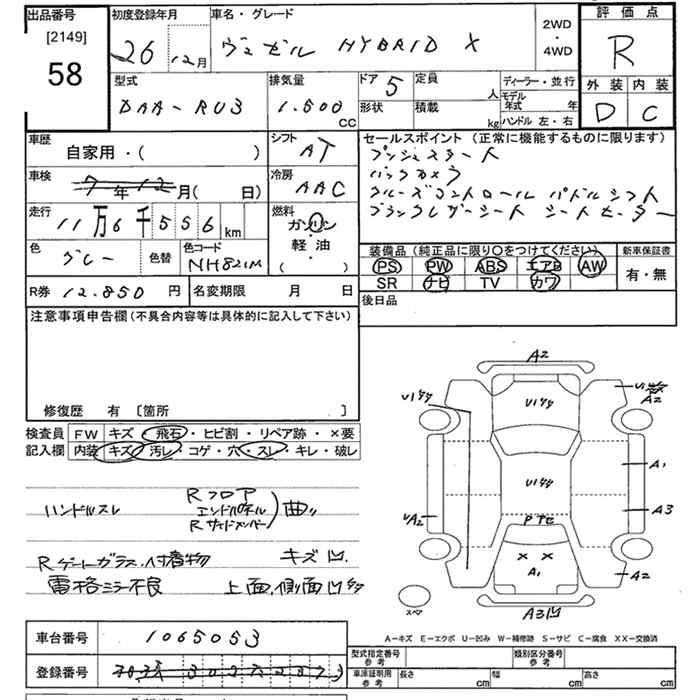 出品番号 初度登録年月 車名・グレード 2WD・4WD 評価点
[2149] 58 26 12月 ヴェゼル HYBRID X R
外装 内装
D C
型式 排気量 ドア 定員 ディーラー・並行
DAA-RU3 1.500 CC 5 人 モデル年式 年
形状 積載 kg ハンドル 左・右
車歴 シフト セールスポイント (正常に機能するものに限ります)
自家用・( ) AT プッシュスタート
車検 7年12月( 日) 冷房 AAC バックカメラ
クルーズコントロール パドルシフト
走行 11万6千556km 燃料 ガソリン 軽油 ( ・ ) ブラックレザーシート シートヒーター
色 グレー 色替 色コード NH821M
装備品 (純正品に限り○をつけてください) 新車保証書
PS PW ABS エアB AW 有・無
SR ナビ TV カワ
R券 12.850 円 名変期限 月 日 後日品
注意事項申告欄 (不具合内容等は具体的に記入して下さい)
修復歴 有 〔箇所 〕
検査員 FW キズ・飛石・ヒビ割・リペア跡・×要
記入欄 内装 キズ・汚レ・コゲ・穴・スレ・キレ・破レ
ハンドルスレ Rフロア エンドパネル Rサイドメンバー 曲り
Rゲートガラス付着物 キズ凹
電格ミラー不良 上面,側面凹キズ
A2
A2
A1
A3
A2
A1
× ×
A3凹
スペア
A−キズ E−エクボ U−凹み W−補修跡 S−サビ C−腐食 XX−交換済
車台番号 1065053
登録番号
型式指定番号 参考 類別区分番号 参考
車庫証明用 参考 長さ cm 幅 cm 高さ cm